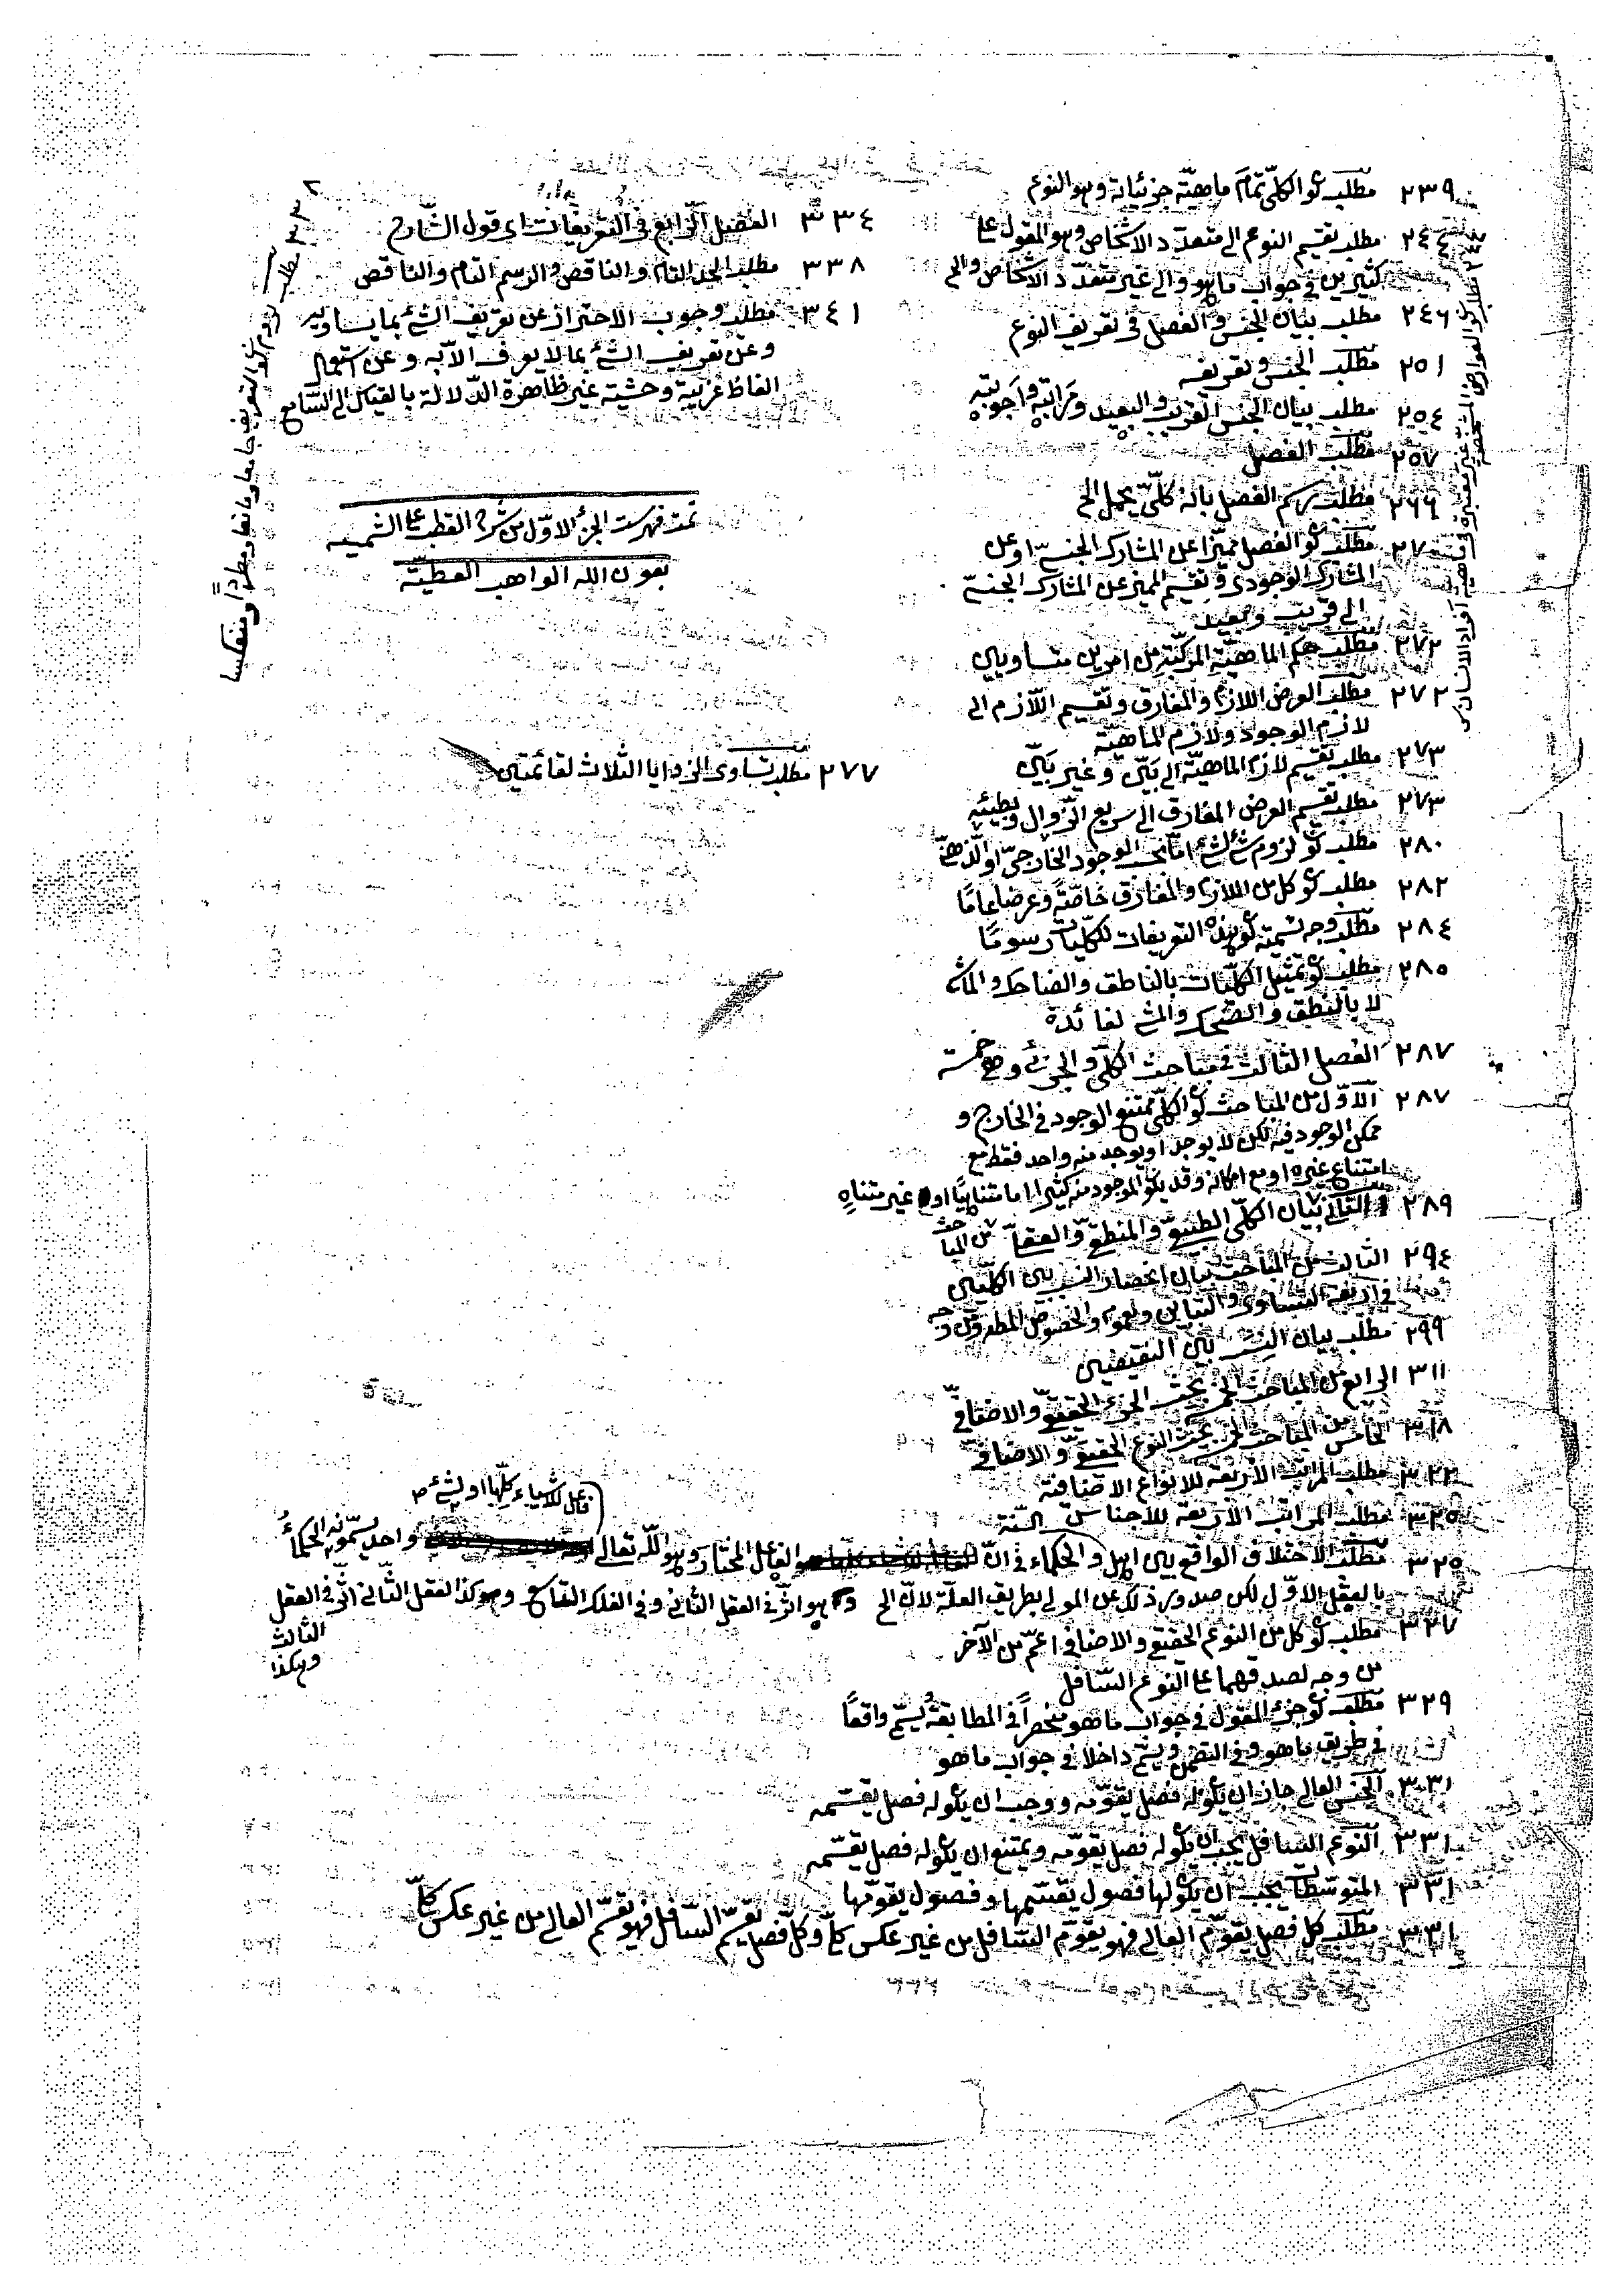 ٢٣٩ مطلب كو الكلّي تمام ماهيّة جزئياته وهو النوع
٢٤٤ مطلب تقسيم النوع الى متعدّد الاشخاص وهو المقول على
كثيرين في جواب ما هو والى غير متعدّد الاشخاص والخ
٢٤٦ مطلب بيان الجنس والفصل في تعريف النوع
٢٥١ مطلب الجنس وتعريفه
٢٥٤ مطلب بيان الجنس القريب والبعيد ومراتبه واجوبته
٢٥٧ مطلب الفصل
٢٦٦ مطلب رسم الفصل بانه كلّي يحمل الخ
٢٧٠ مطلب كو الفصل مميّزا عن المشارك الجنسيّ او عن
المشارك الوجودي وتقسيم المميز عن المشارك الجنسيّ
الى قريب وبعيد
٢٧٢ مطلب حكم الماهيّة المركّبة من امرين متساويين
٢٧٢ مطلب العرض اللازم والمفارق وتقسيم اللّازم الى
لازم الوجود ولازم الماهيّة
٢٧٣ مطلب تقسيم لازم الماهيّة الى بيّن وغير بيّن
٢٧٣ مطلب تقسيم العرض المفارق الى سريع الزّوال وبطيئه
٢٨٠ مطلب كو لزوم شئ لشئ امّا بحسب الوجود الخارجيّ او الذّهنيّ
٢٨٢ مطلب كو كل من اللازم والمفارق خاصّةً وعرضا عامّا
٢٨٤ مطلب وجه تسمية كو هذه التعريفات للكلّيات رسومًا
٢٨٥ مطلب كو تمثيل الكلّيات بالناطق والضاحك والماشي
لا بالنطق والضحك والمشي لفائدة
٢٨٧ الفصل الثالث في مباحث الكلّي والجزئي وهي خمسة
٢٨٧ الاوّل من المباحث كو الكلّي ممتنع الوجود في الخارج و
ممكن الوجود فيه لكن لا يوجد او يوجد منه واحد فقط مع
امتناع غيره او مع امكانه وقد يكو الموجود منه كثيرا اما متناهيًا او غير متناهٍ
٢٨٩ الثاني بيان الكلّي الطبيعيّ والمنطقيّ والعقليّ من المباحث
٢٩٤ الثالث من المباحث بيان انحصار النسب بين الكلّيين
في اربعة التساوي والتباين والعموم والخصوص المطلق ومن وجه
٢٩٩ مطلب بيان النسب بين النقيضين
٣١١ الرابع من المباحث الخمس بحث الجزئ الحقيقيّ والاضافيّ
٣١٨ الخامس من المباحث الخمس بحث النوع الحقيقيّ والاضافيّ
٣٢٢ مطلب المراتب الاربعة للانواع الاضافية
٣٢٥ مطلب المراتب الاربعة للاجناس
٣٢٥ مطلب الاختلاف الواقع بين اهل السنة والحكماء في انّ الفاعل المختار وهو اللّه تعالى فاعل للاشياء كلّها او لشئ واحد يسمّونه الحكماءُ
بالعقل الاوّل لكن صدور ذلك عن المولى بطريق العلّة لانّ الخ وهو اثّر في العقل الثاني وفي الفلك التاسع وهو كذا العقل الثّاني اثّر في العقل
الثالث
وهكذا
٣٢٧ مطلب كو كل من النوع الحقيقي والاضافي اعمّ من الآخر
من وجه لصدقهما على النوع السّافل
٣٢٩ مطلب كو جزء المقول في جواب ما هو منحصراً في المطابقة ويسمّى واقعًا
في طريق ما هو وفي التضمّن ويسمّى داخلا في جواب ما هو
٣٣١ الجنس العالي جاز ان يكو له فصل يقوّمه ووجب ان يكو له فصل يقسّمه
٣٣١ النّوع السّافل يجب ان يكو له فصل يقوّمه ويمتنع ان يكو له فصل يقسّمه
٣٣١ المتوسّطات يجب ان يكو لها فصول يقسّمها وفصول يقوّمها
٣٣١ مطلب كل فصل يقوّم العالي فهو يقوّم السّافل من غير عكس كلّي وكلّ فصل يقسّم السّافل فهو يقسّم العالي من غير عكس كلّي
٢٤٤ مطلب كو العوارض المشخّصة غير معتبرة في ماهية افراد الانسان
٣٣٤ الفصل الرّابع في التعريفات اى قول الشّارح
٣٣٨ مطلب الحد التام والناقص والرسم التام والناقص
٣٤١ مطلب وجوب الاحتراز عن تعريف الشئ بما يساويه
وعن تعريف الشئ بما لا يعرف الاّ به وعن استعمال
الفاظ غريبة وحشيّة غير ظاهرة الدّلالة بالقياس الى السّامع
تمت فهرست الجزء الاوّل من شرح القطب على الشمسيه
بعون الله الواهب العطيّة
٢٧٧ مطلب تساوى الزوايا الثّلاث لقائمتين
مطلب لزوم كو التعريف جامعا ومانعا ومطّردًا ومنعكسا